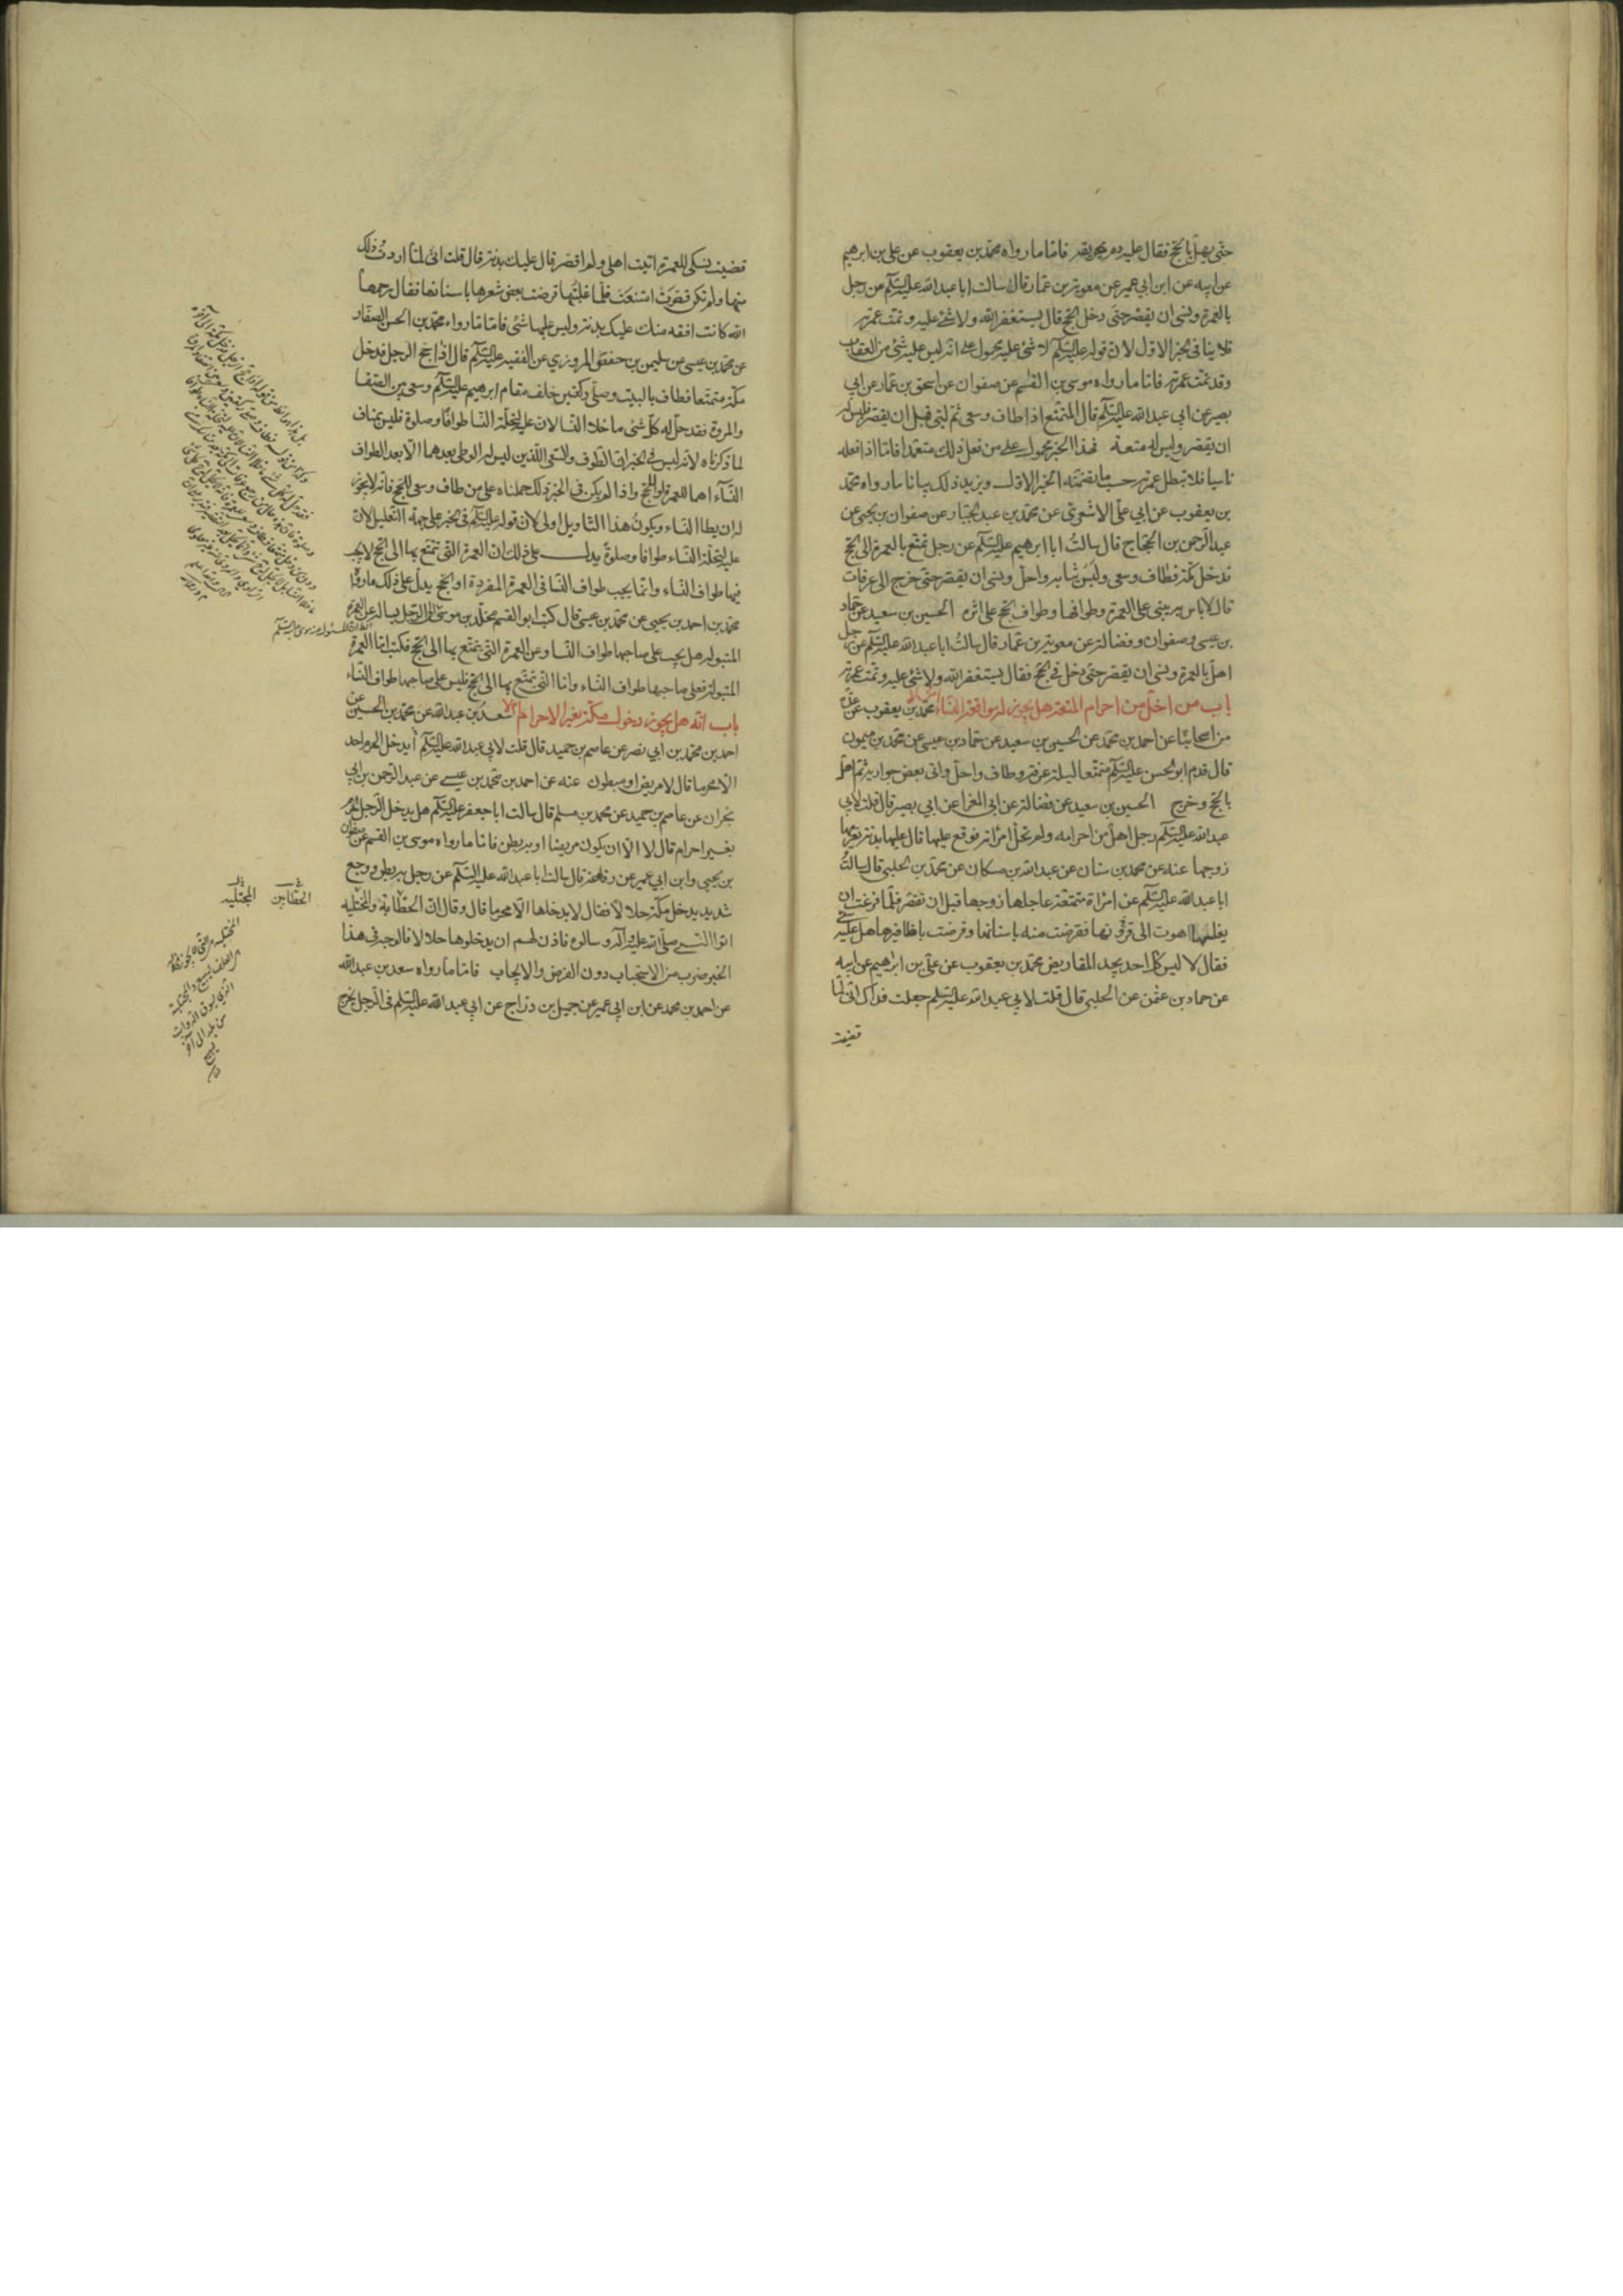 حتى يهل بالحج فقال عليه دم يهريقه فاما ما رواه محمد بن يعقوب عن علي بن ابرهيم
عن ابيه عن ابن ابي عمير عن معوية بن عمار قال سالت ابا عبد الله عليه السلم عن رجل
بالعمرة ونسى ان يقصر حتى دخل الحج قال يستغفر الله ولا شئ عليه وتمت عمرته
فلا ينافى الخبر الاول لان قوله عليه السلم لا شئ عليه محمول على انه ليس عليه شئ من العقاب
وقد تمت عمرته فاما ما رواه موسى بن القسم عن صفوان عن اسحق بن عمار عن ابي
بصير عن ابي عبد الله عليه السلم قال المتمتع اذا طاف وسعى ثم لبى قبل ان يقصر فليس له
ان يقصر وليس له متعة فهذا الخبر محمول على من فعل ذلك متعمدا فاما اذا فعله
ناسيا فلا تبطل عمرته حسب ما تضمنه الخبر الاول ويزيد ذلك بيانا ما رواه محمد
بن يعقوب عن ابي علي الاشعري عن محمد بن عبد الجبار عن صفوان بن يحيى عن
عبد الرحمن بن الحجاج قال سالت ابا ابرهيم عليه السلم عن رجل تمتع بالعمرة الى الحج
فدخل مكة فطاف وسعى ولبس ثيابه واحل ونسى ان يقصر حتى خرج الى عرفات
قال لا باس به يبنى على العمرة وطوافها وطواف الحج على اثره الحسين بن سعيد عن حماد
بن عيسى وصفوان وفضالة عن معوية بن عمار قال سالت ابا عبد الله عليه السلم عن رجل
اهل بالعمرة ونسى ان يقصر حتى دخل في الحج فقال يستغفر الله ولا شئ عليه وتمت عمرته
باب من احل من احرام المتعة هل يجوز له مواقعة النساء محمد بن يعقوب عن عدة
من اصحابنا عن احمد بن محمد عن الحسين بن سعيد عن حماد بن عيسى عن محمد بن ميمون
قال قدم ابو الحسن عليه السلم متمتعا ليلة عرفة وطاف واحل واتى بعض جواريه ثم اهل
بالحج وخرج الحسين بن سعيد عن فضالة عن ابي المغرا عن ابي بصير قال قلت لابي
عبد الله عليه السلم رجل احل من احرامه ولم تحل امراته فوقع عليها قال عليها بدنة يغرمها
زوجها عنه عن محمد بن سنان عن عبد الله بن مسكان عن محمد بن الحلبي قال سالت
ابا عبد الله عليه السلم عن امراة متمتعة عاجلها زوجها قبل ان تقصر فلما
يغلبها اهوت الى قرونها فقرضت منه باسنانها وقرضت باظافيرها هل عليه شئ
فقال لا ليس كل احد يجد المقاريض محمد بن يعقوب عن علي بن ابراهيم عن ابيه
عن حماد بن عثمن عن الحلبي قال قلت لابي عبد الله عليه السلم جعلت فداك اني لما
قضيت
قضيت نسكى للعمرة اتيت اهلى ولم اقصر قال عليك بدنة قال قلت اني لما اردت ذلك
منها ولم تكن قصرت امتنعت فلما غلبتها قرضت بعض شعرها باسنانها فقال رحمها
الله كانت افقه منك عليك بدنة وليس عليها شئ فاما ما رواه محمد بن الحسن الصفار
عن محمد بن عيسى عن سليمن بن حفص المروزي عن الفقيه عليه السلم قال اذا حج الرجل فدخل
مكة متمتعا فطاف بالبيت وصلى ركعتين خلف مقام ابرهيم عليه السلم وسعى بين الصفا
والمروة فقد حل له كل شئ ما خلا النسا لان عليه لتحلة النسا طوافا وصلوة فليس بمناف
لما ذكرناه لانه ليس في الخبر ان الطواف والسعى اللذين ليس له الوطى بعدهما الا بعد الطواف
النساء اهما للعمرة او للحج واذا لم يكن في الخبر ذلك حملناه على من طاف وسعى للحج فانه لا يجوز
له ان يطا النساء ويكون هذا التاويل اولى لان قوله عليه السلم في الخبر على جهة التعليل لان
عليه لتحلة النساء طوافا وصلوة يدل على ذلك ان العمرة التى تمتع بها الى الحج لا يجب
فيها طواف النساء وانما يجب طواف النسا في العمرة المفردة او الحج يدل على ذلك ما رواه
محمد بن احمد بن يحيى عن محمد بن عيسى قال كتب ابو القسم مخلد بن موسى الرازي الى الرجل يساله عن العمرة
المتبولة هل يجب على صاحبها طواف النسا وعن العمرة التى يتمتع بها الى الحج فكتب اما العمرة
المتبولة فعلى صاحبها طواف النساء واما التى تمتع بها الى الحج فليس على صاحبها طواف النساء
باب انه هل يجوز دخول مكة بغير الاحرام ام لا سعد بن عبد الله عن محمد بن الحسين عن
احمد بن محمد بن ابي نصر عن عاصم بن حميد قال قلت لابي عبد الله عليه السلم أيدخل الحرم احد
الا محرما قال لا مريض او مبطون عنه عن احمد بن محمد بن عيسى عن عبد الرحمن بن ابي
نجران عن عاصم بن حميد عن محمد بن مسلم قال سالت ابا جعفر عليه السلم هل يدخل الرجل الحرم
بغير احرام قال لا الا ان يكون مريضا او به بطن فاما ما رواه موسى بن القسم عن صفوان
بن يحيى وابن ابي عمير عن رفاعة قال سالت ابا عبد الله عليه السلم عن رجل به بطن ووجع
شديد يدخل مكة حلالا فقال لا يدخلها الا محرما قال وقال ان الحطابة والمختلية
اتوا النبي صلى الله عليه وآله وسالوه فاذن لهم ان يدخلوها حلالا فالوجه في هذا
الخبر ضرب من الاستحباب دون الفرض والايجاب فاما ما رواه سعد بن عبد الله
عن احمد بن محمد عن ابن ابي عمير عن جميل بن دراج عن ابي عبد الله عليه السلم في الرجل يخرج
الحطابين
المجتلبه